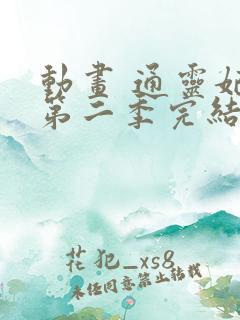 動畫 通靈妃
第二季完結
花犯_xs8
未經同意禁止轉載